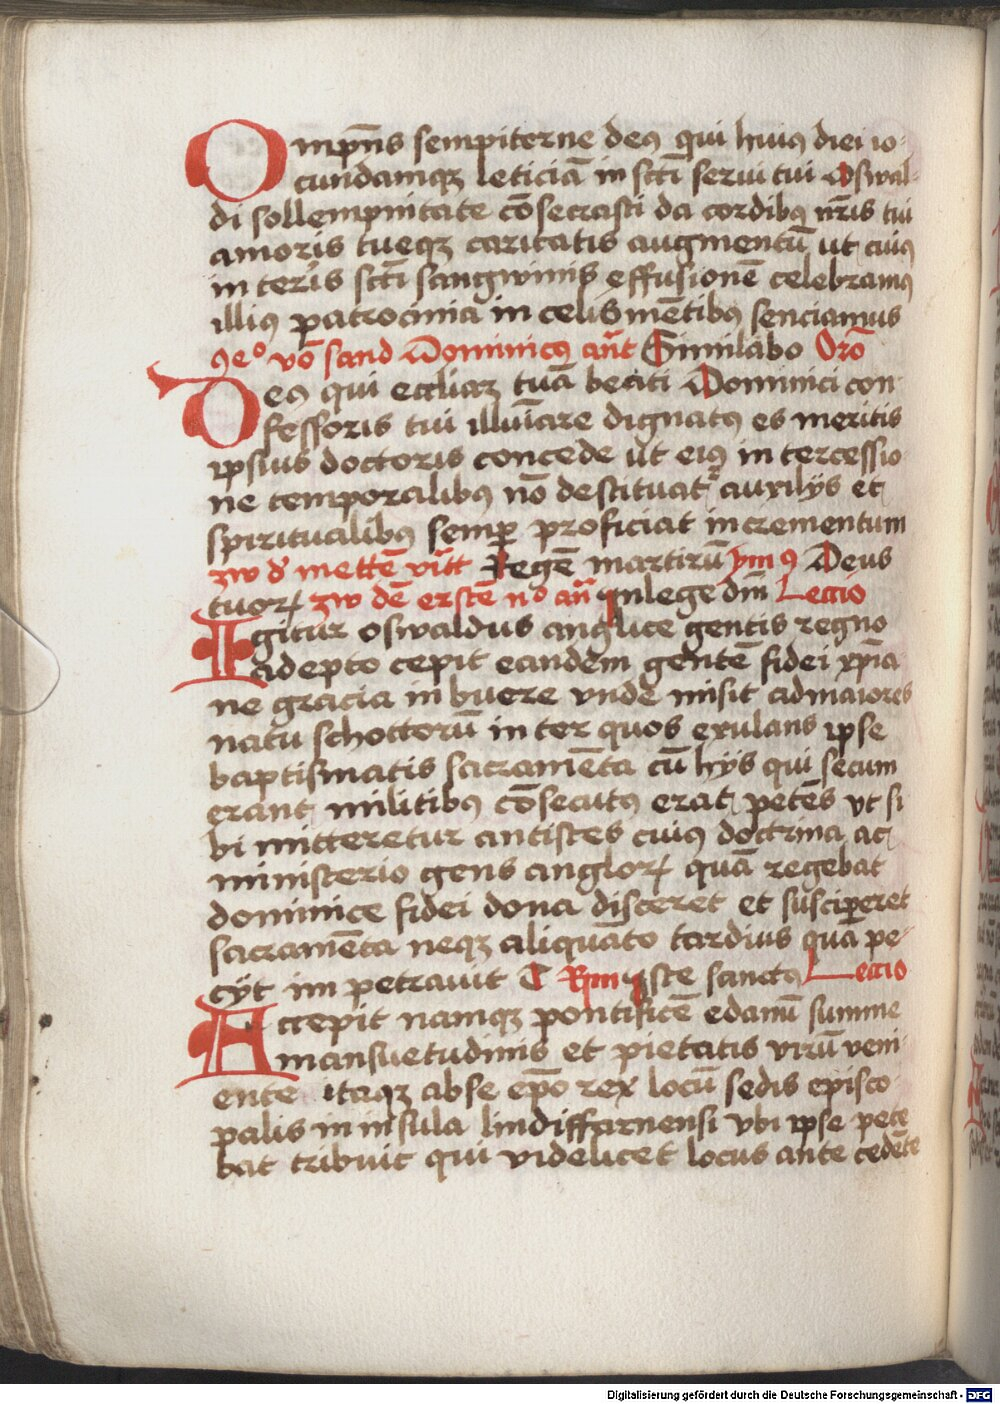 Omp̄ns sempiterne deꝯ qui huiꝯ diei io-
cundamqꝫ leticiā in sc̄ti serui tui Oswal-
di sollempnitate cōsecrasti da cordibꝯ nr̄is tui
amoris tueqꝫ caritatis augmentū ut cuiꝯ
in terris sc̄ti sangwinis effusionē celebramꝯ
illiꝯ patrocinia in celis mētibꝯ senciamus
vō sand Dominicꝯ an̄t Similabo Orō
Deꝯ qui eccliaꝫ tuā beati Dominici con
fessoris tui illuīare dignatꝯ es meritis
ipsius doctoris concede ut eiꝯ intercessio-
ne temporalibꝯ nō destituat᷑ auxilijs et
spiritualibꝯ semꝑ proficiat incrementum
zw d᷑ mettē vīt Regē martirū ympꝯ Deus
tuoꝝ zw dē erstē n° an̄ Inlege dnī Lectio
Igitur oswaldus anglice gentis regno
adepto cepit eandem gentē fidei xp̄ia
ne gracia inbuere vnde misit ad maiores
natu schottorū inter quos exulans ipse
baptismatis sacramēta cū hijs qui secum
erant militibꝯ cōsecutꝯ erat petēs vt si
bi mitteretur antistes cuiꝯ doctrina ac
ministerio gens angloꝝ quā regebat
dominice fidei dona disceret et susciꝑet
sacramēta neqꝫ aliquāto tardius quā pe-
cijt impetrauit Iste sanctꝯ Lectio
Accepit namqꝫ pontificē edanū summe
mansuetudinis et pietatis virū veni-
ente itaqꝫ ab se ep̄o rex locū sedis episco-
palis in insula lindiffarnensi vbi ipse pete
bat tribuit qui videlicet locus ante cedēte